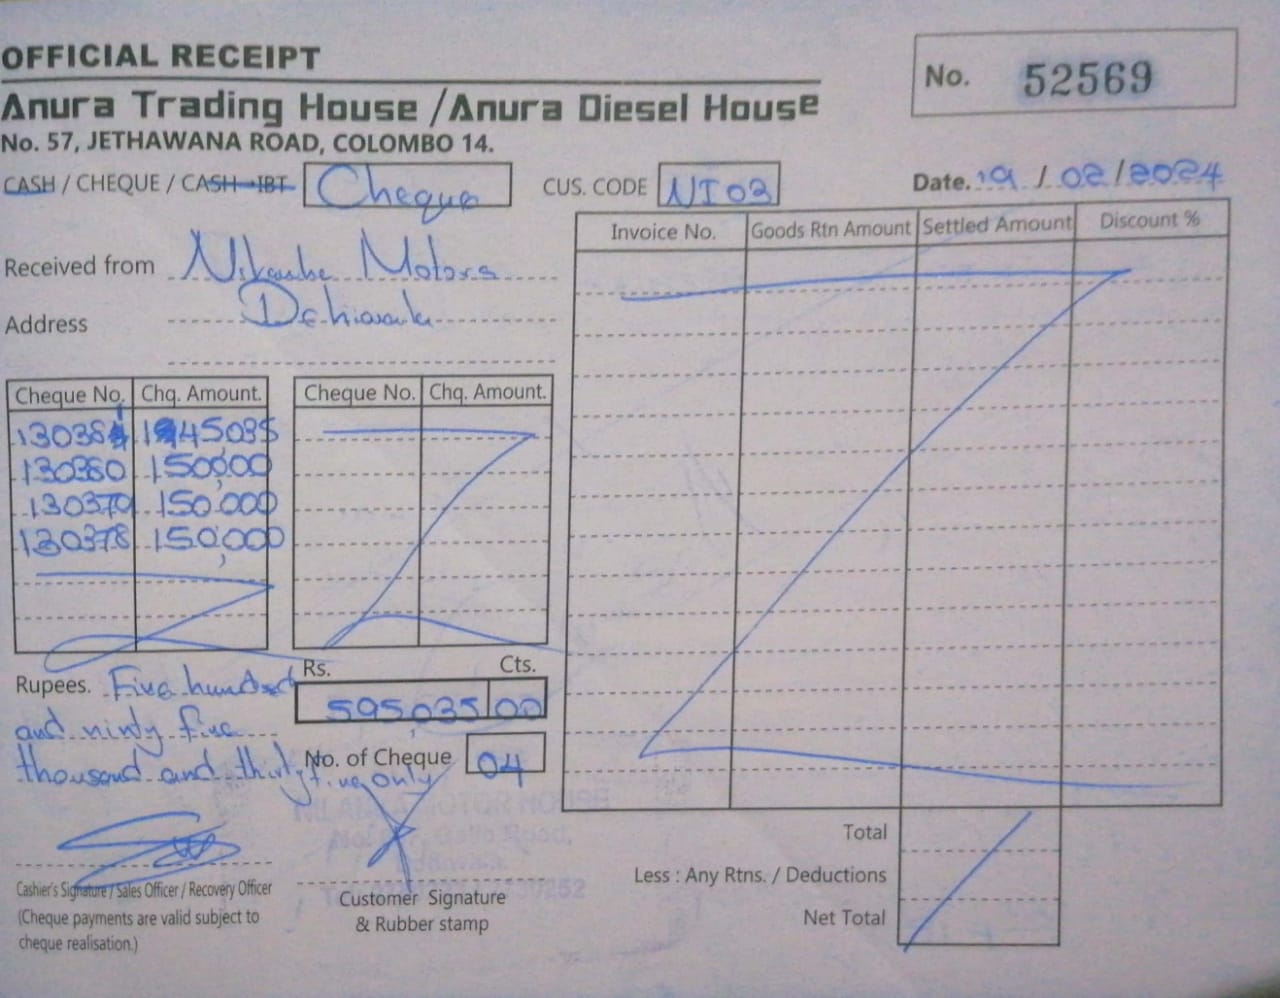 OFFICIAL RECEIPT
No. 52569
Anura Trading House / Anura Diesel House
No. 57, JETHAWANA ROAD, COLOMBO 14.
CASH / CHEQUE / CASH - IBT Cheque CUS. CODE NI03 Date. 19 / 02 / 2024
Invoice No. Goods Rtn Amount Settled Amount Discount %
Received from Motors
Address
Cheque No. Chq. Amount. Cheque No. Chq. Amount.
145035
130380 150,000
130379 150,000
130378 150,000
Rs. Cts.
Rupees. Five hundred 595,035 00
and ninty five
No. of Cheque 04
thousand and thirty five only
Total
Less : Any Rtns. / Deductions
Net Total
Cashier's Signature / Sales Officer / Recovery Officer
(Cheque payments are valid subject to
cheque realisation.)
Customer Signature
& Rubber stamp